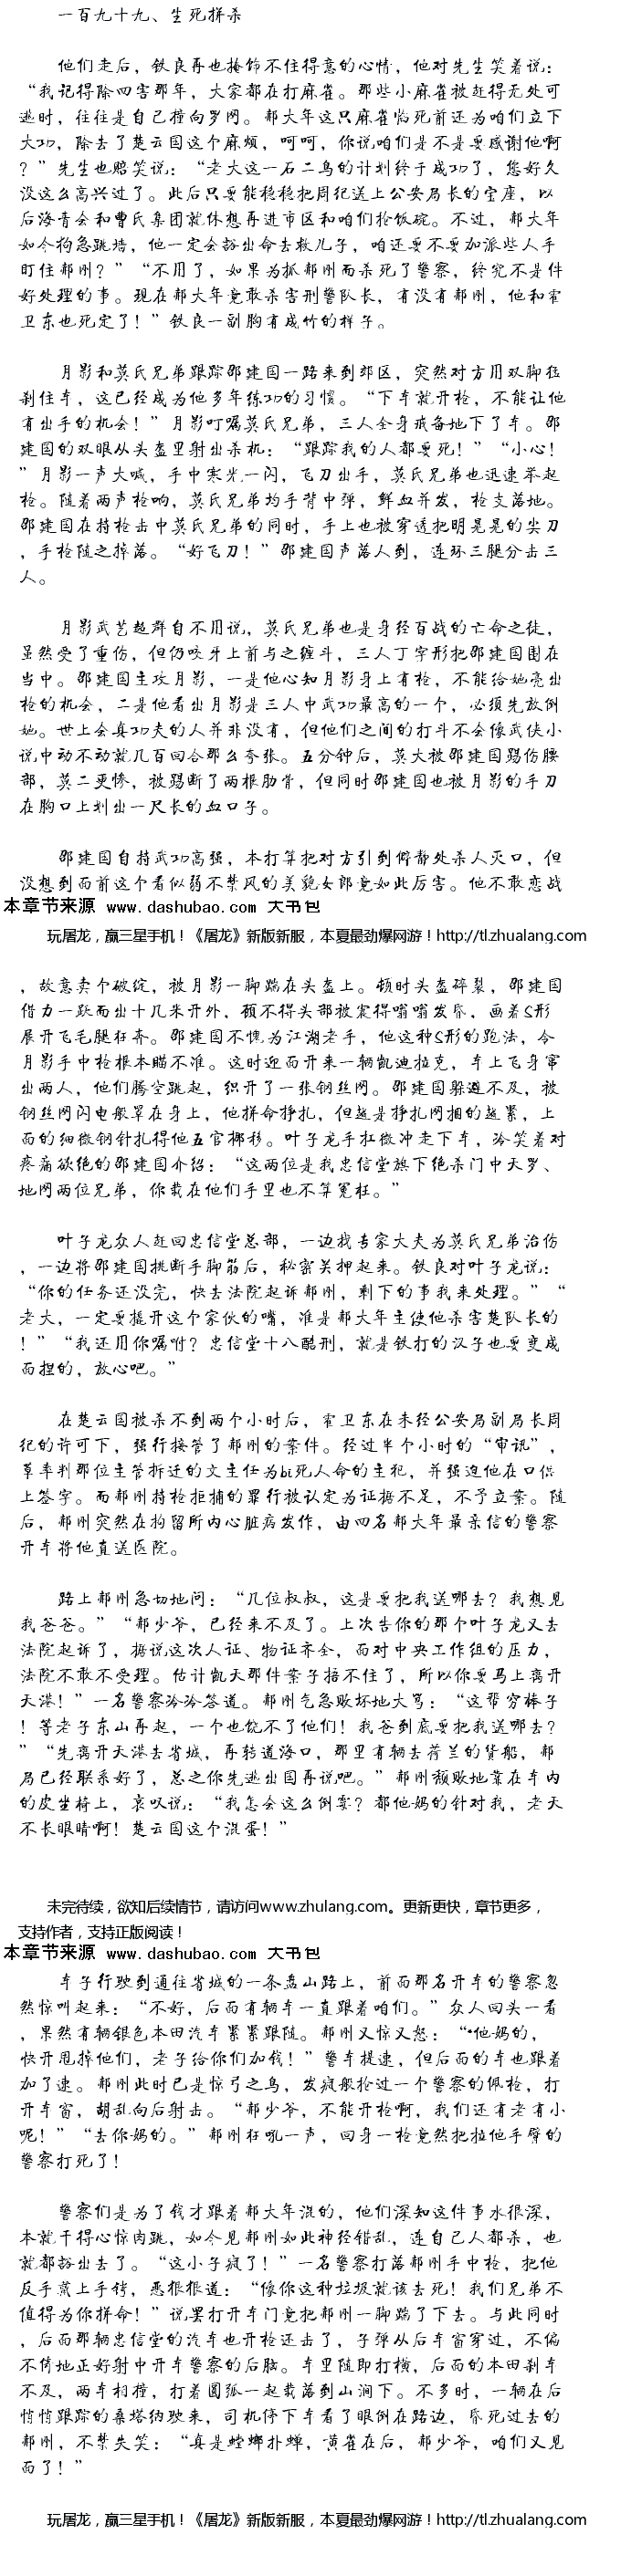 一百九十九、生死拼杀
他们走后，铁良再也掩饰不住得意的心情，他对先生笑着说：
“我记得除四害那年，大家都在打麻雀。那些小麻雀被赶得无处可
逃时，往往是自己撞向罗网。郝大年这只麻雀临死前还为咱们立下
大功，除去了楚云国这个麻烦，呵呵，你说咱们是不是要感谢他啊
？”先生也赔笑说：“老大这一石二鸟的计划终于成功了，您好久
没这么高兴过了。此后只要能稳稳把周纪送上公安局长的宝座，以
后海青会和曹氏集团就休想再进市区和咱们抢饭碗。不过，郝大年
如今狗急跳墙，他一定会豁出命去救儿子，咱还要不要加派些人手
盯住郝刚？”“不用了，如果为抓郝刚而杀死了警察，终究不是件
好处理的事。现在郝大年竟敢杀害刑警队长，有没有郝刚，他和霍
卫东也死定了！”铁良一副胸有成竹的样子。
月影和莫氏兄弟跟踪邵建国一路来到郊区，突然对方用双脚猛
刹住车，这已经成为他多年练功的习惯。“下车就开枪，不能让他
有出手的机会！”月影叮嘱莫氏兄弟，三人全身戒备地下了车。邵
建国的双眼从头盔里射出杀机：“跟踪我的人都要死！”“小心！
”月影一声大喊，手中寒光一闪，飞刀出手，莫氏兄弟也迅速举起
枪。随着两声枪响，莫氏兄弟均手背中弹，鲜血并发，枪支落地。
邵建国在持枪击中莫氏兄弟的同时，手上也被穿透把明晃晃的尖刀
，手枪随之掉落。“好飞刀！”邵建国声落人到，连环三腿分击三
人。
月影武艺超群自不用说，莫氏兄弟也是身经百战的亡命之徒，
虽然受了重伤，但仍咬牙上前与之缠斗，三人丁字形把邵建国围在
当中。邵建国主攻月影，一是他心知月影身上有枪，不能给她亮出
枪的机会，二是他看出月影是三人中武功最高的一个，必须先放倒
她。世上会真功夫的人并非没有，但他们之间的打斗不会像武侠小
说中动不动就几百回合那么夸张。五分钟后，莫大被邵建国踢伤腰
部，莫二更惨，被踢断了两根肋骨，但同时邵建国也被月影的手刀
在胸口上划出一尺长的血口子。
邵建国自持武功高强，本打算把对方引到僻静处杀人灭口，但
没想到面前这个看似弱不禁风的美貌女郎竟如此厉害。他不敢恋战
本章节来源 www.dashubao.com 大书包
玩屠龙，赢三星手机！《屠龙》新版新服，本夏最劲爆网游！http://tl.zhualang.com
，故意卖个破绽，被月影一脚踹在头盔上。顿时头盔碎裂，邵建国
借力一跃而出十几米开外，顾不得头部被震得嗡嗡发昏，画着S形
展开飞毛腿狂奔。邵建国不愧为江湖老手，他这种S形的跑法，令
月影手中枪根本瞄不准。这时迎面开来一辆凯迪拉克，车上飞身窜
出两人，他们腾空跳起，织开了一张钢丝网。邵建国躲避不及，被
钢丝网闪电般罩在身上，他拼命挣扎，但越是挣扎网捆的越紧，上
面的细微钢针扎得他五官挪移。叶子龙手扛微冲走下车，冷笑着对
疼痛欲绝的邵建国介绍：“这两位是我忠信堂旗下绝杀门中天罗、
地网两位兄弟，你栽在他们手里也不算冤枉。”
叶子龙众人赶回忠信堂总部，一边找专家大夫为莫氏兄弟治伤
，一边将邵建国挑断手脚筋后，秘密关押起来。铁良对叶子龙说：
“你的任务还没完，快去法院起诉郝刚，剩下的事我来处理。”“
老大，一定要撬开这个家伙的嘴，准是郝大年主使他杀害楚队长的
！”“我还用你嘱咐？忠信堂十八酷刑，就是铁打的汉子也要变成
面捏的，放心吧。”
在楚云国被杀不到两个小时后，霍卫东在未经公安局副局长周
纪的许可下，强行接管了郝刚的案件。经过半个小时的“审讯”，
草率判那位主管拆迁的文主任为bi死人命的主犯，并强迫他在口供
上签字。而郝刚持枪拒捕的罪行被认定为证据不足，不予立案。随
后，郝刚突然在拘留所内心脏病发作，由四名郝大年最亲信的警察
开车将他直送医院。
路上郝刚急切地问：“几位叔叔，这是要把我送哪去？我想见
我爸爸。”“郝少爷，已经来不及了。上次告你的那个叶子龙又去
法院起诉了，据说这次人证、物证齐全，面对中央工作组的压力，
法院不敢不受理。估计凯天那件案子捂不住了，所以你要马上离开
天港！”一名警察冷冷答道。郝刚气急败坏地大骂：“这帮穷棒子
！等老子东山再起，一个也饶不了他们！我爸到底要把我送哪去？
”“先离开天港去省城，再转道海口，那里有辆去荷兰的货船，郝
局已经联系好了，总之你先逃出国再说吧。”郝刚颓败地靠在车内
的皮坐椅上，哀叹说：“我怎会这么倒霉？都他妈的针对我，老天
不长眼睛啊！楚云国这个混蛋！”
未完待续，欲知后续情节，请访问www.zhulang.com。更新更快，章节更多，
支持作者，支持正版阅读！
本章节来源 www.dashubao.com 大书包
车子行驶到通往省城的一条盘山路上，前面那名开车的警察忽
然惊叫起来：“不好，后面有辆车一直跟着咱们。”众人回头一看
，果然有辆银色本田汽车紧紧跟随。郝刚又惊又怒：“·他妈的，
快开甩掉他们，老子给你们加钱！”警车提速，但后面的车也跟着
加了速。郝刚此时已是惊弓之鸟，发疯般抢过一个警察的佩枪，打
开车窗，胡乱向后射击。“郝少爷，不能开枪啊，我们还有老有小
呢！”“去你妈的。”郝刚狂吼一声，回身一枪竟然把拉他手臂的
警察打死了！
警察们是为了钱才跟着郝大年混的，他们深知这件事水很深，
本就干得心惊肉跳，如今见郝刚如此神经错乱，连自己人都杀，也
就都豁出去了。“这小子疯了！”一名警察打落郝刚手中枪，把他
反手戴上手铐，恶狠狠道：“像你这种垃圾就该去死！我们兄弟不
值得为你拼命！”说罢打开车门竟把郝刚一脚踹了下去。与此同时
，后面那辆忠信堂的汽车也开枪还击了，子弹从后车窗穿过，不偏
不倚地正好射中开车警察的后脑。车里随即打横，后面的本田刹车
不及，两车相撞，打着圆弧一起栽落到山涧下。不多时，一辆在后
悄悄跟踪的桑塔纳驶来，司机停下车看了眼倒在路边，昏死过去的
郝刚，不禁失笑：“真是螳螂扑蝉，黄雀在后，郝少爷，咱们又见
面了！”
玩屠龙，赢三星手机！《屠龙》新版新服，本夏最劲爆网游！http://tl.zhualang.com